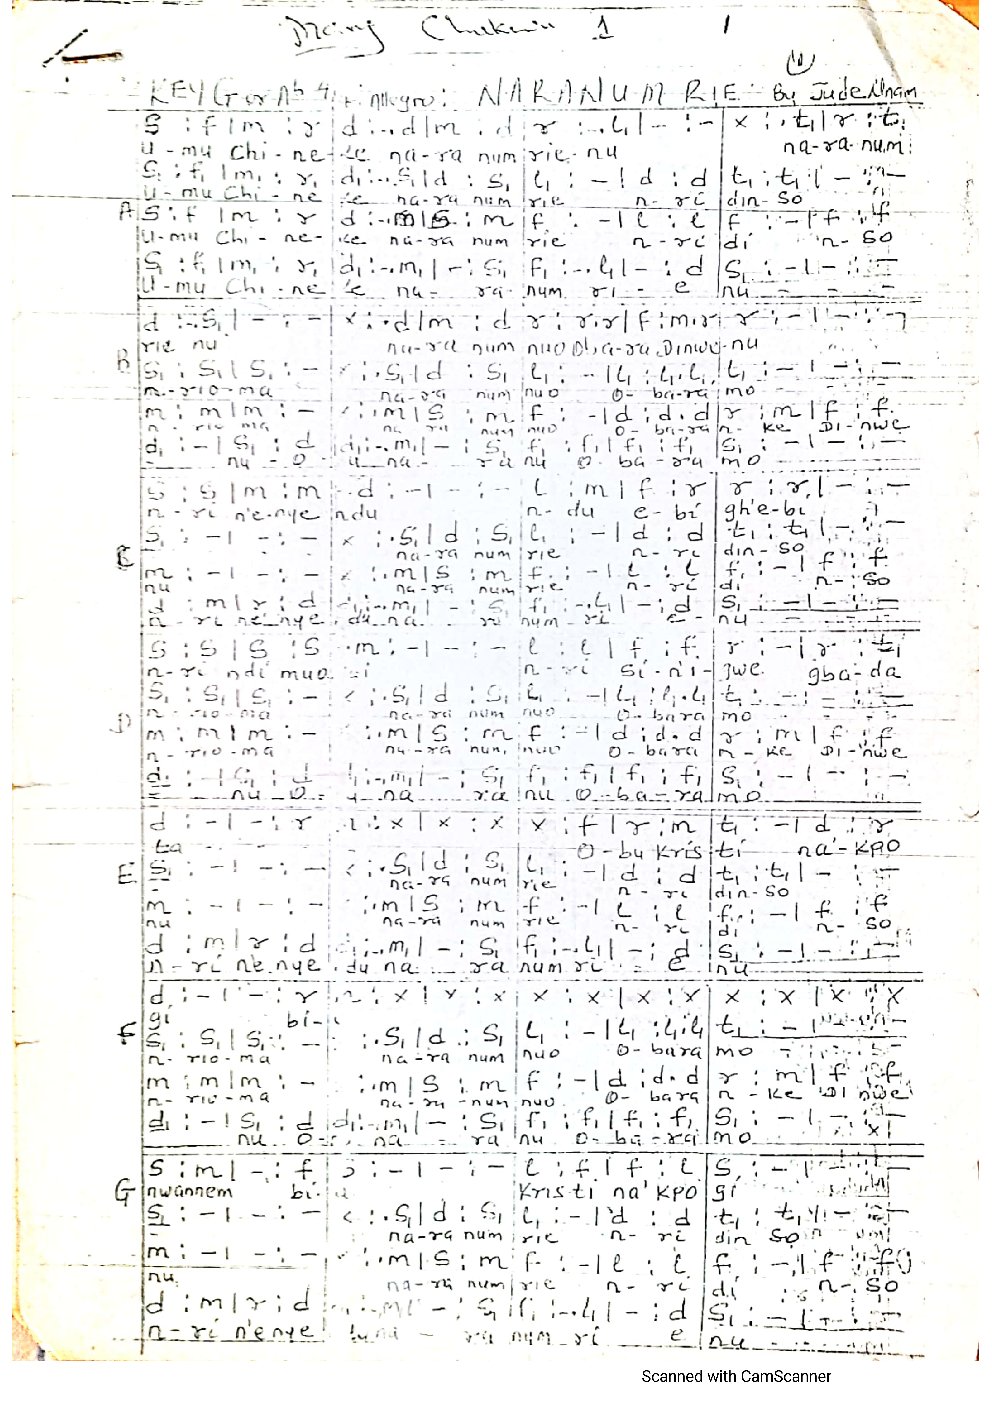 1
KEY G or Ab 4 Allegro: NARANUM RIE By Jude Nnam
S : f | m : r d : . d | m . d r : . l₁ | - : - x : . t₁ | r : t₁
U - mu Chi - ne - ke na - ra num rie - nu na - ra - num
S₁ : f₁ | m₁ : r₁ d₁ : . S₁ | d : S₁ l₁ : - | d : d t₁ : t₁ | - : -
U - mu Chi - ne ke na - ra num rie n - ri din - So
A S : f | m : r d : . m | S : m f : - | l : l f : - | f : f
U - mu Chi - ne - ke na - ra num rie n - ri di n - So
S₁ : f₁ | m₁ : r₁ d₁ : . m₁ | - : S₁ f₁ : . l₁ | - : d S₁ : - | - : -
U - mu Chi - ne ke na - ra - num ri - e nu
d : . S₁ | - : - x : . d | m : d r : r . r | f : m . r r : - | - : -
rie nu na - ra num nuo Oba - ra Dinwe - nu
B S₁ : S₁ | S₁ : - x : . S₁ | d : S₁ l₁ : - | l₁ : l₁ . l₁ t₁ : - | - : -
n - rio - ma na - ra num nuo O - ba - ra mo
m : m | m : - x : . m | S : m f : - | d : d . d r : m | f : f
n - rio ma na ra num nuo O - ba - ra n - ke Di - nwe
d₁ : - | S₁ : d d₁ : . m₁ | - : S₁ f₁ : f₁ | f₁ : f₁ S₁ : - | - : -
nu - O u na - ra nu O - ba - ra mo
S : S | m : m d : - | - : - l : m | f : r r : r₁ | - : -
n - ri n'e - nye ndu n - du e - bi gh'e - bi
S₁ : - | - : - x : . S₁ | d : S₁ l₁ : - | d : d t₁ : t₁ | - : -
na - ra num rie n - ri din - So
C m : - | - : - x : . m | S : m f : - | l : l f : - | f : f
nu na - ra num rie n - ri di n - So
d : m | r : d d₁ : . m₁ | - : S₁ f₁ : . l₁ | - : d S₁ : - | - : -
n - ri ne'nye du na ra num - ri e - nu
S : S | S : S m : - | - : - l : l | f : f r : - | r : t₁
n - ri ndi muo n - ri Si - n'i - gwe gba - da
S₁ : S₁ | S₁ : - x : . S₁ | d : S₁ l₁ : - | l₁ : l₁ . l₁ t₁ : - | - : -
n - rio - ma na - ra num nuo O - bara mo
D m : m | m : - : . m | S : m f : - | d : d . d r : m | f : f
n - rio - ma na - ra num nuo O - bara n - ke Di - nwe
d₁ : - | S₁ : d d₁ : . m₁ | - : S₁ f₁ : f₁ | f₁ : f₁ S₁ : - | - : -
nu O u na ra nu O - ba - ra mo
d : - | - : r : x | x : x x : f | r : m t₁ : - | d : r
ta O - bu Kris ti na' - KPO
E S₁ : - | - : - x : . S₁ | d : S₁ l₁ : - | d : d t₁ : t₁ | - : -
na - ra num rie n - ri din - So
m : - | - : - : . m | S : m f : - | l : l f : - | f : f
nu na - ra num rie n - ri di n - So
d : m | r : d d₁ : . m₁ | - : S₁ f₁ : . l₁ | - : d S₁ : - | - : -
n - ri ne nye du na ra num ri e nu
d : - | - : r : x | x : x x : x | x : x x : x | x : x
gi bi -
F S₁ : S₁ | S₁ : - : . S₁ | d : S₁ l₁ : - | l₁ : l₁ . l₁ t₁ : - | - : -
n - rio - ma na - ra num nuo O - bara mo
m : m | m : - : . m | S : m f : - | d : d . d r : m | f : f
n - rio - ma na - ra - num nuo O - bara n - ke Di nwe
d₁ : - | S₁ : d d₁ : . m₁ | - : S₁ f₁ : f₁ | f₁ : f₁ S₁ : - | - : -
nu O - na - ra nu O - ba - ra mo
S : m | - : f S : - | - : - l : f | f : l S : - | - : -
G nwannem bi - Kristi na' KPO gi
S₁ : - | - : - x : . S₁ | d : S₁ l₁ : - | d : d t₁ : t₁ | - : -
na - ra num rie n - ri din So
m : - | - : - : . m | S : m f : - | l : l f : - | f : f
nu na - ra num rie n - ri di n - So
d : m | r : d : . m₁ | - : S₁ f₁ : . l₁ | - : d S₁ : - | - : -
n - ri n'e nye na - ra num ri e nu
Scanned with CamScanner